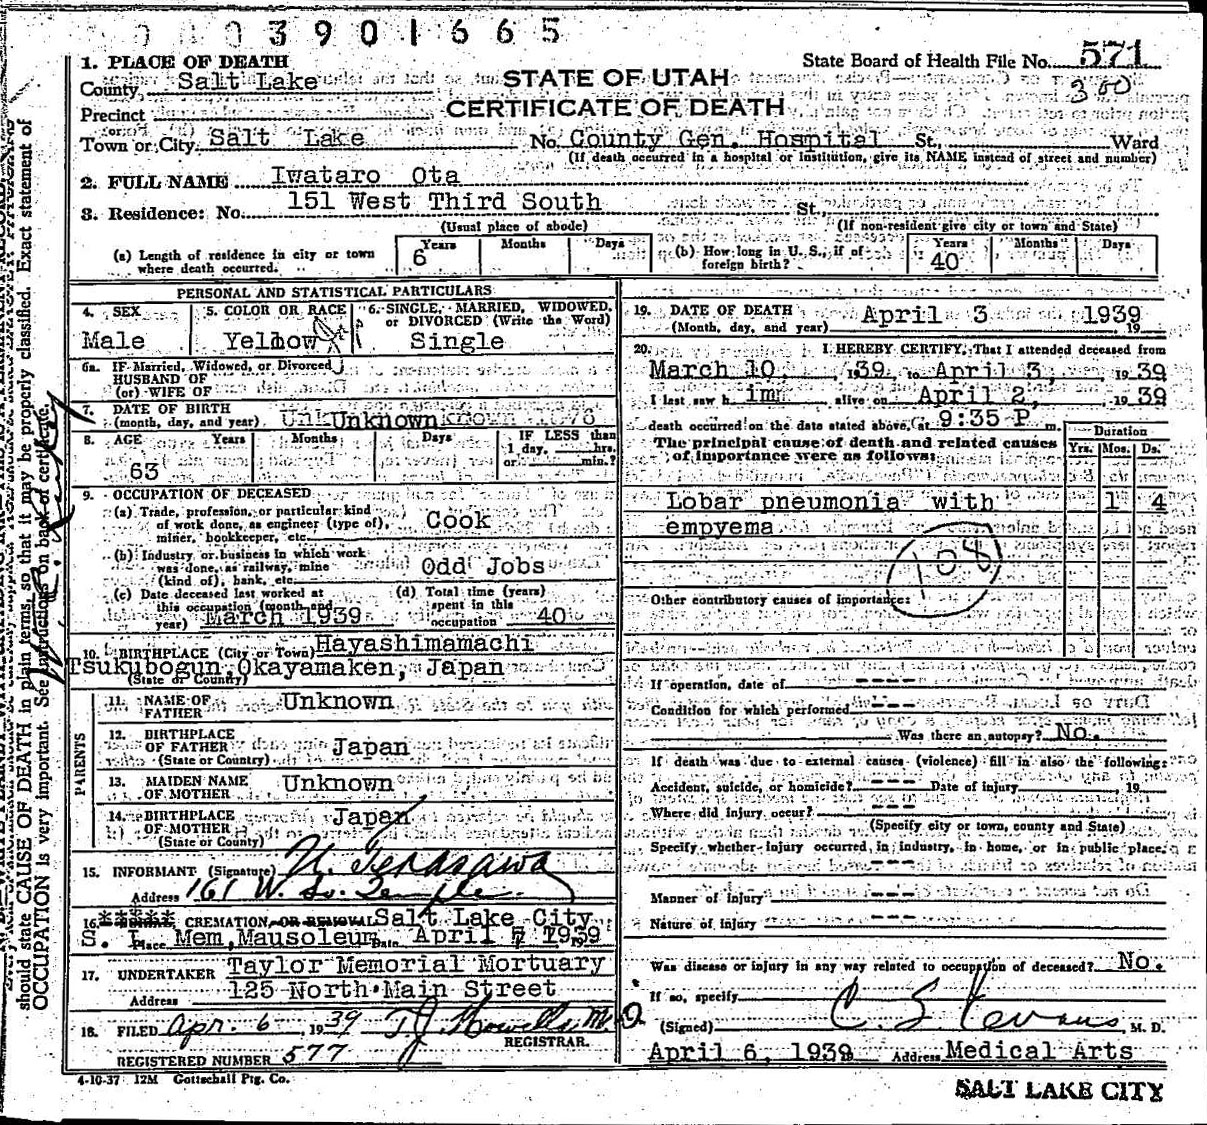 0 1 0 3 9 0 1 6 6 5
1. PLACE OF DEATH
State Board of Health File No. 571
County Salt Lake
STATE OF UTAH
300
Precinct
CERTIFICATE OF DEATH
Town or City Salt Lake No. County Gen. Hospital St., Ward
(If death occurred in a hospital or institution, give its NAME instead of street and number)
2. FULL NAME Iwataro Ota
3. Residence: No. 151 West Third South St.,
(Usual place of abode) (If non-resident give city or town and State)
(a) Length of residence in city or town where death occurred. Years 6 Months Days
(b) How long in U. S., if of foreign birth? Years 40 Months Days
PERSONAL AND STATISTICAL PARTICULARS
4. SEX 5. COLOR OR RACE 6. SINGLE, MARRIED, WIDOWED, or DIVORCED (Write the Word)
Male Yellow Single
6a. IF Married, Widowed, or Divorced
HUSBAND OF
(or) WIFE OF
7. DATE OF BIRTH
(month, day, and year) Unknown 1876
8. AGE Years Months Days IF LESS than
1 day, hrs.
or min.?
63
9. OCCUPATION OF DECEASED
(a) Trade, profession, or particular kind
of work done, as engineer (type of), Cook
miner, bookkeeper, etc.
(b) Industry or business in which work
was done, as railway, mine Odd Jobs
(kind of), bank, etc.
(c) Date deceased last worked at
this occupation (month and
year) March 1939
(d) Total time (years)
spent in this
occupation 40
10. BIRTHPLACE (City or Town) Hayashimamachi
Tsukubogun, Okayamaken, Japan
(State or Country)
PARENTS
11. NAME OF
FATHER Unknown
12. BIRTHPLACE
OF FATHER Japan
(State or Country)
13. MAIDEN NAME
OF MOTHER Unknown
14. BIRTHPLACE
OF MOTHER Japan
(State or County)
15. INFORMANT (Signature) U. Terasawa
Address 161 W. So. Temple.
16. ****** CREMATION OR REMOVAL Salt Lake City
S. L. Place Mem, Mausoleum Date April 7 1939
17. UNDERTAKER Taylor Memorial Mortuary
Address 125 North Main Street
18. FILED Apr. 6, 1939 T J Howells M.D
REGISTRAR.
REGISTERED NUMBER 577
4-10-37 12M Gottschall Ptg. Co.
19. DATE OF DEATH
(Month, day, and year) April 3 1939 19
20. I HEREBY CERTIFY, That I attended deceased from
March 10, 1939 to April 3, 1939
I last saw him alive on April 2, 1939
death occurred on the date stated above, at 9:35 P m.
The principal cause of death and related causes
of importance were as follows:
Duration
Yrs. Mos. Ds.
Lobar pneumonia with 1 4
empyema
108
Other contributory causes of importance:
If operation, date of ---
Condition for which performed ---
Was there an autopsy? No.
If death was due to external causes (violence) fill in also the following:
Accident, suicide, or homicide? --- Date of injury , 19
Where did injury occur? ---
(Specify city or town, county and State)
Specify whether injury occurred in industry, in home, or in public place,
---
Manner of injury ---
Nature of injury ---
Was disease or injury in any way related to occupation of deceased? No.
If so, specify
(Signed) C. L. Kevans M. D.
April 6, 1939 Address Medical Arts
SALT LAKE CITY
should state CAUSE OF DEATH in plain terms, so that it may be properly classified. Exact statement of
OCCUPATION is very important. See instructions on back of certificate.